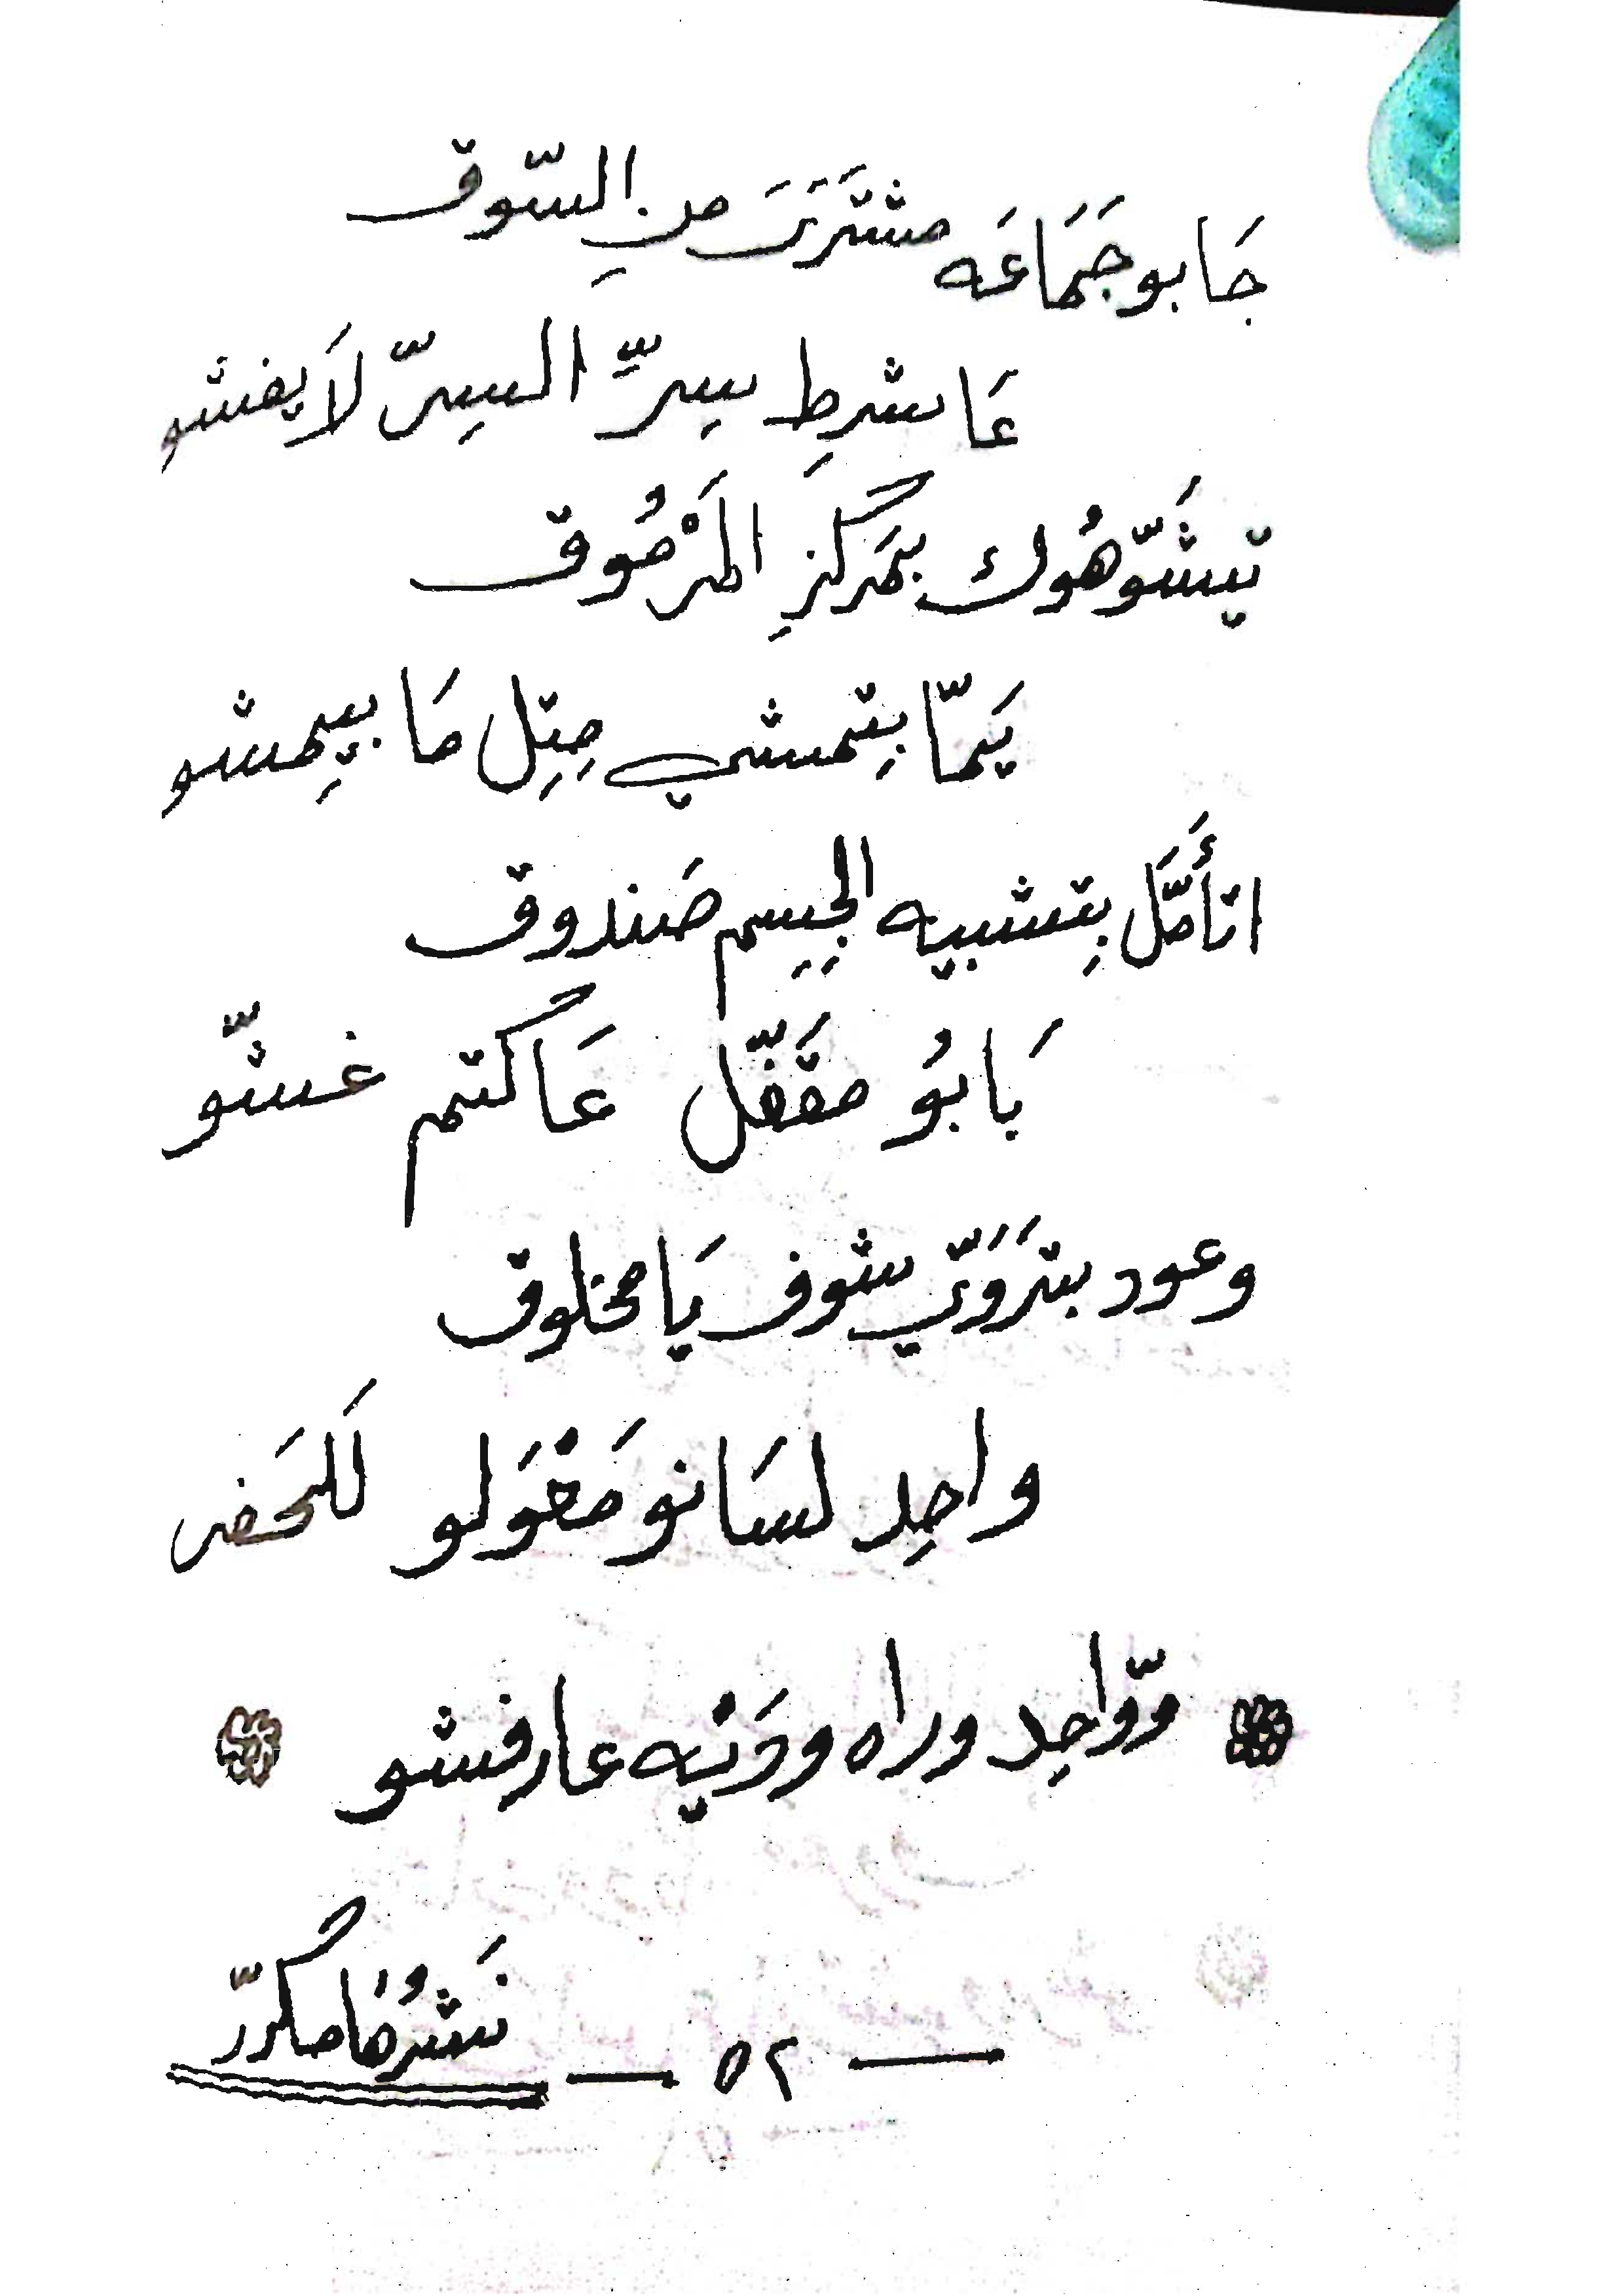 جَابو جَمَاعَه مشتَرَىَ مِن السّوق
عَا شرطِ سِرِّ السِرّ لاَ يفشو
تيشَوّهُوك بمَركزِ المَرْمُوق
يَمّا بِتمشي مِتِل مَا بيِمشو
اتأَمَّل بِتشبيه الجِسِم صَندوق
بَابُو مقَفّل عَا كتم غشّو
وعود بترَوَّي شوف يَا مخلوق
واحِد لسَانو مَغْوَلو لَلحَفر
ووّاحِد وراه ودَنيْه عارفشو
— ٥٢ — نَشرُهَا مكرّر